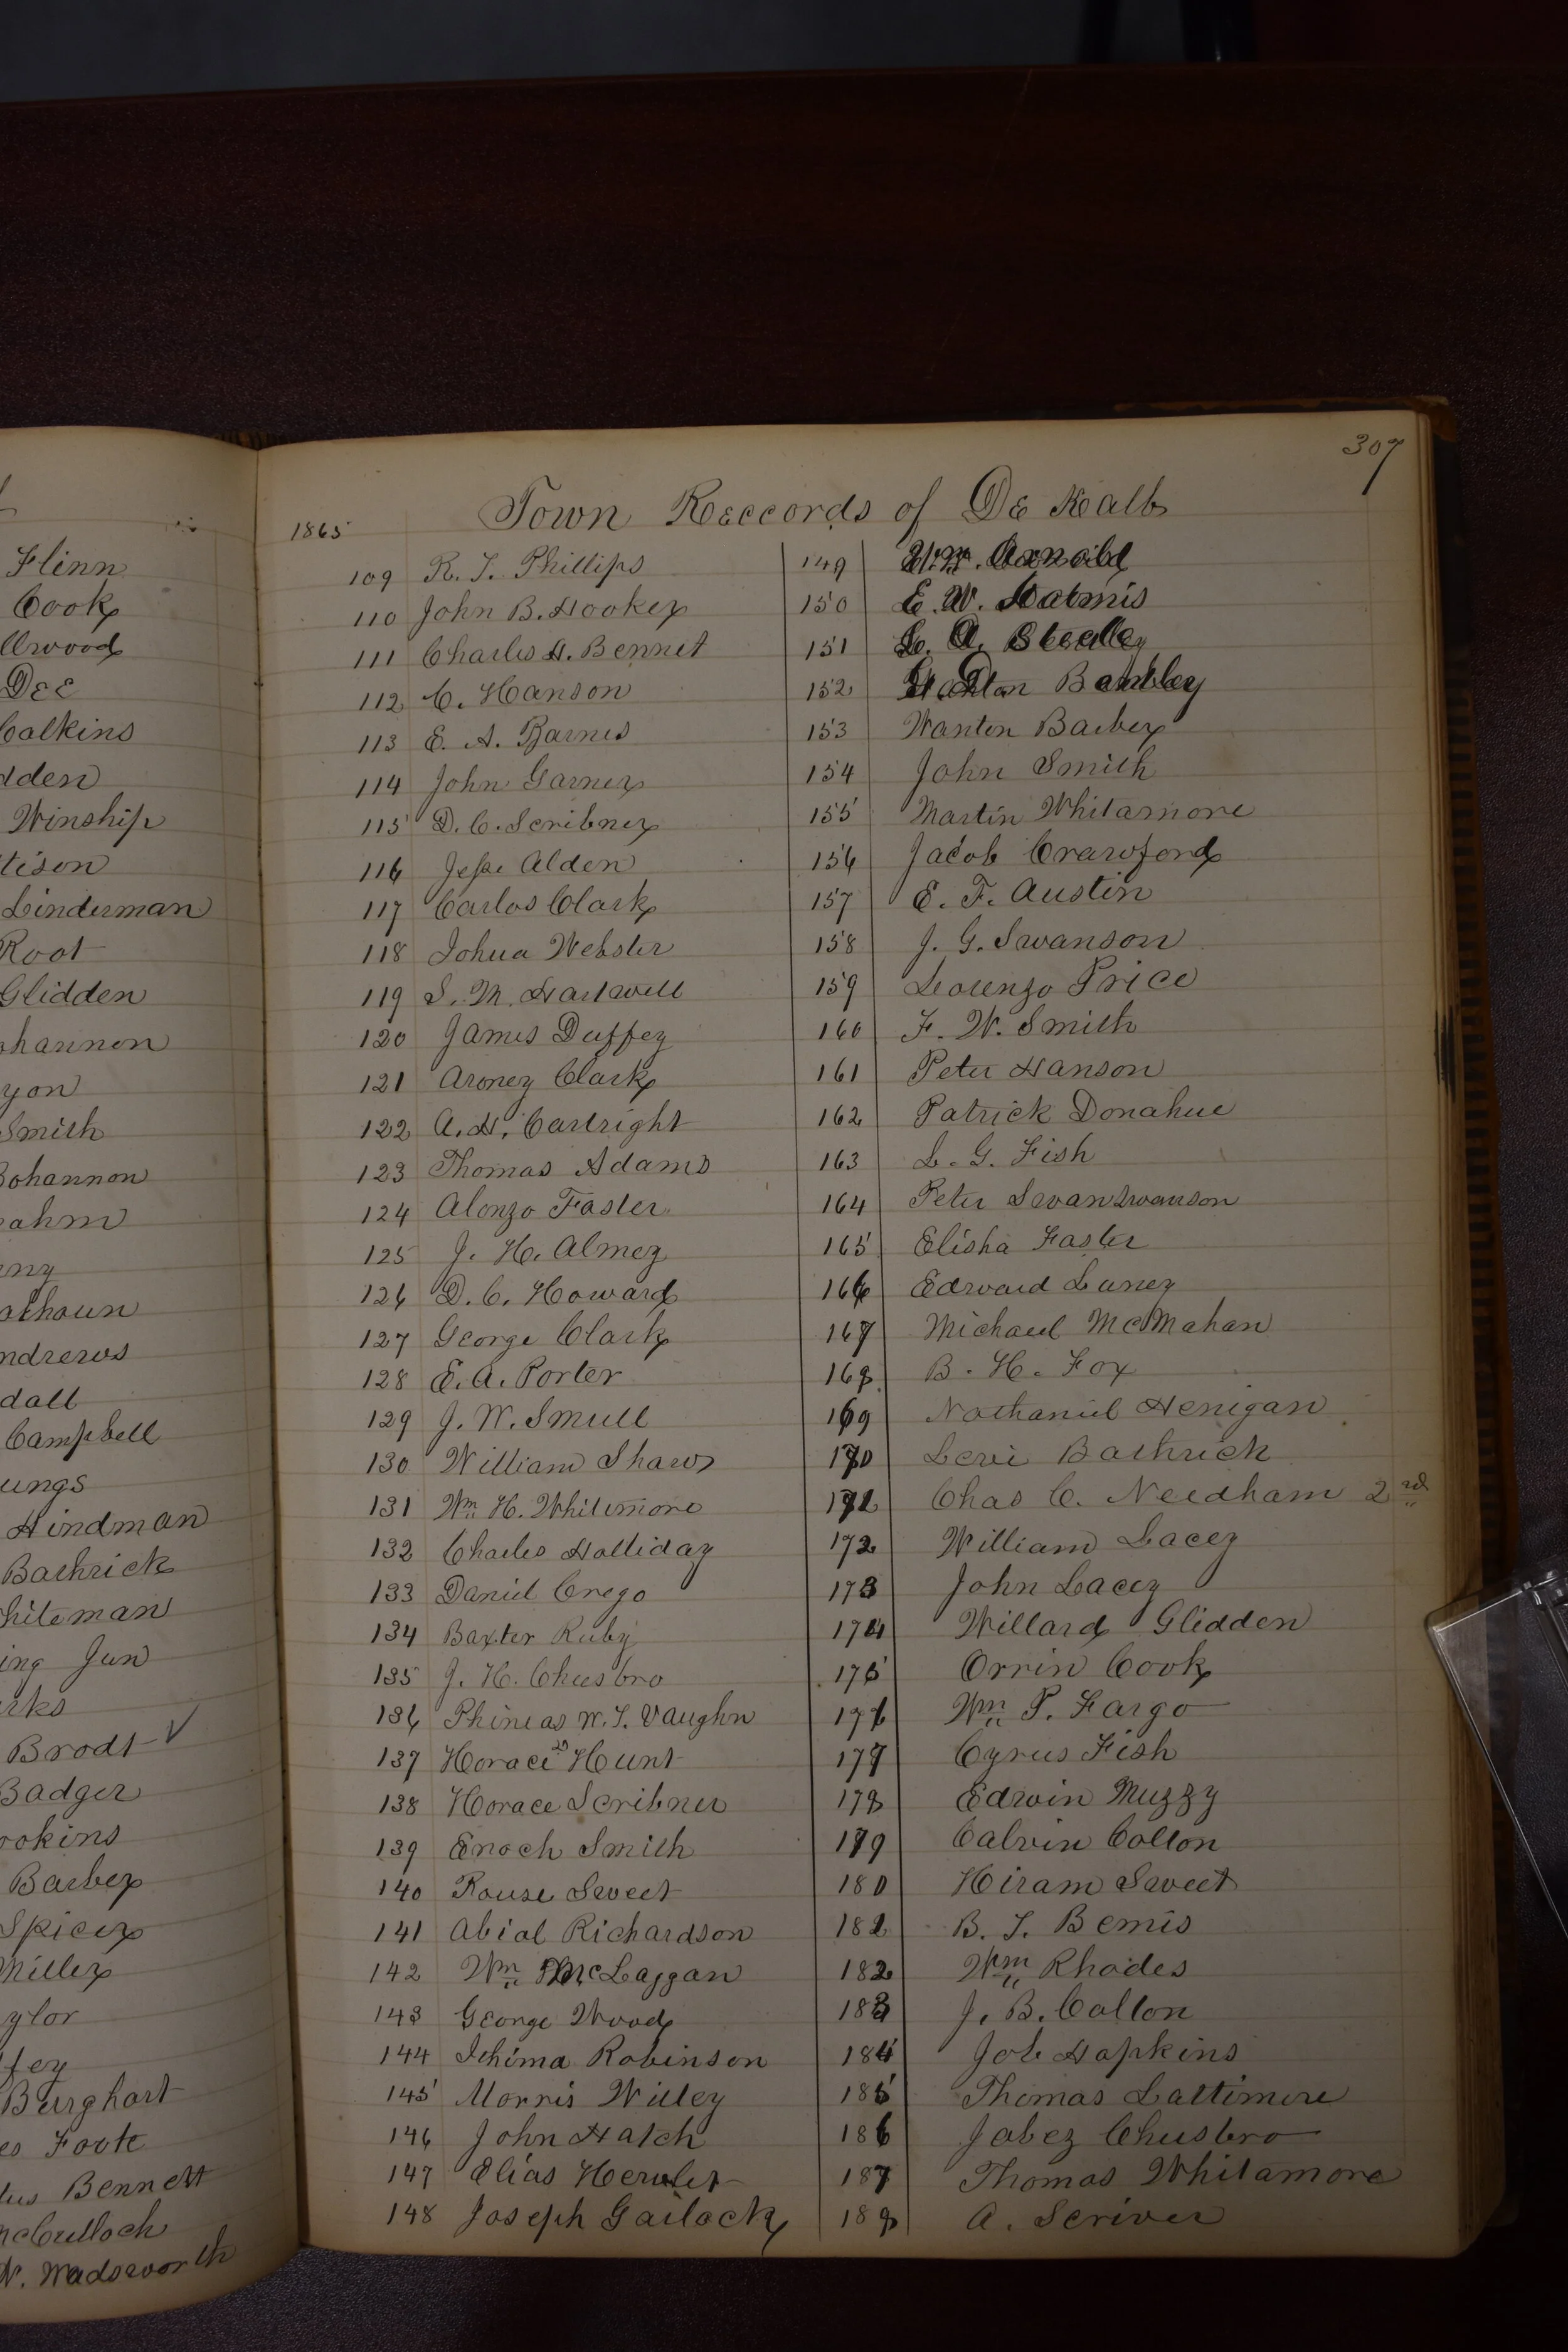 Flinn
Cook
llwood
DEE
Calkins
dden
Winship
tison
Linderman
Root
Glidden
ohannon
yon
Smith
Bohannon
rahm
eny
athoun
ndrews
dall
Campbell
ungs
Hindman
Bathrick
hiteman
ing Jun
rks
Brodt ✓
Badger
okins
Barber
Spicer
Miller
ylor
ffey
Burghart
es Foote
lus Bennett
McCulloch
N. Wadsworth
307
1865 Town Reccords of De Kalb
109 R. T. Phillips
110 John B. Hooker
111 Charles H. Bennet
112 C. Hanson
113 E. A. Barnes
114 John Garner
115 D. C. Scribner
116 Jesse Alden
117 Carlos Clark
118 Johua Webster
119 S. M. Hartwell
120 James Duffey
121 Aroney Clark
122 A. H. Cartright
123 Thomas Adams
124 Alonzo Faster
125 J. H. Almey
126 D. C. Howard
127 George Clark
128 E. A. Porter
129 J. W. Smull
130 William Shaw
131 Wm H. Whitemore
132 Charles Holliday
133 Daniel Crego
134 Baxter Ruby
135 J. H. Cheesbro
136 Phineas W. T. Vaughn
137 Horace Hunt
138 Horace Scribner
139 Enoch Smith
140 Rouse Sweet
141 Abial Richardson
142 Wm McLaggan
143 George Wood
144 Ichima Robinson
145 Morris Willey
146 John Hatch
147 Elias
148 Joseph Garlock
149
150 E. W.
151 A.
152
153 Wanton Barber
154 John Smith
155 Martin Whitamore
156 Jacob Crawford
157 E. F. Austin
158 J. G. Swanson
159 Lorenzo Price
160 F. W. Smith
161 Peter Hanson
162 Patrick Donahue
163 L. G. Fish
164 Peter Swan Swanson
165 Elisha Faster
166 Edward Laney
167 Michael McMahan
168 B. H. Fox
169 Nathaniel Henigan
170 Levi Bathrick
171 Chas C. Needham 2nd
172 William Lacey
173 John Lacey
174 Willard Glidden
175 Orrin Cook
176 Wm P. Fargo
177 Cyrus Fish
178 Edwin Muzzy
179 Calvin Colton
180 Hiram Sweet
181 B. T. Bemis
182 Wm Rhodes
183 J. B. Colton
184 Job Hopkins
185 Thomas Lattimore
186 Jabez Cheesbro
187 Thomas Whitamore
188 A. Scriver